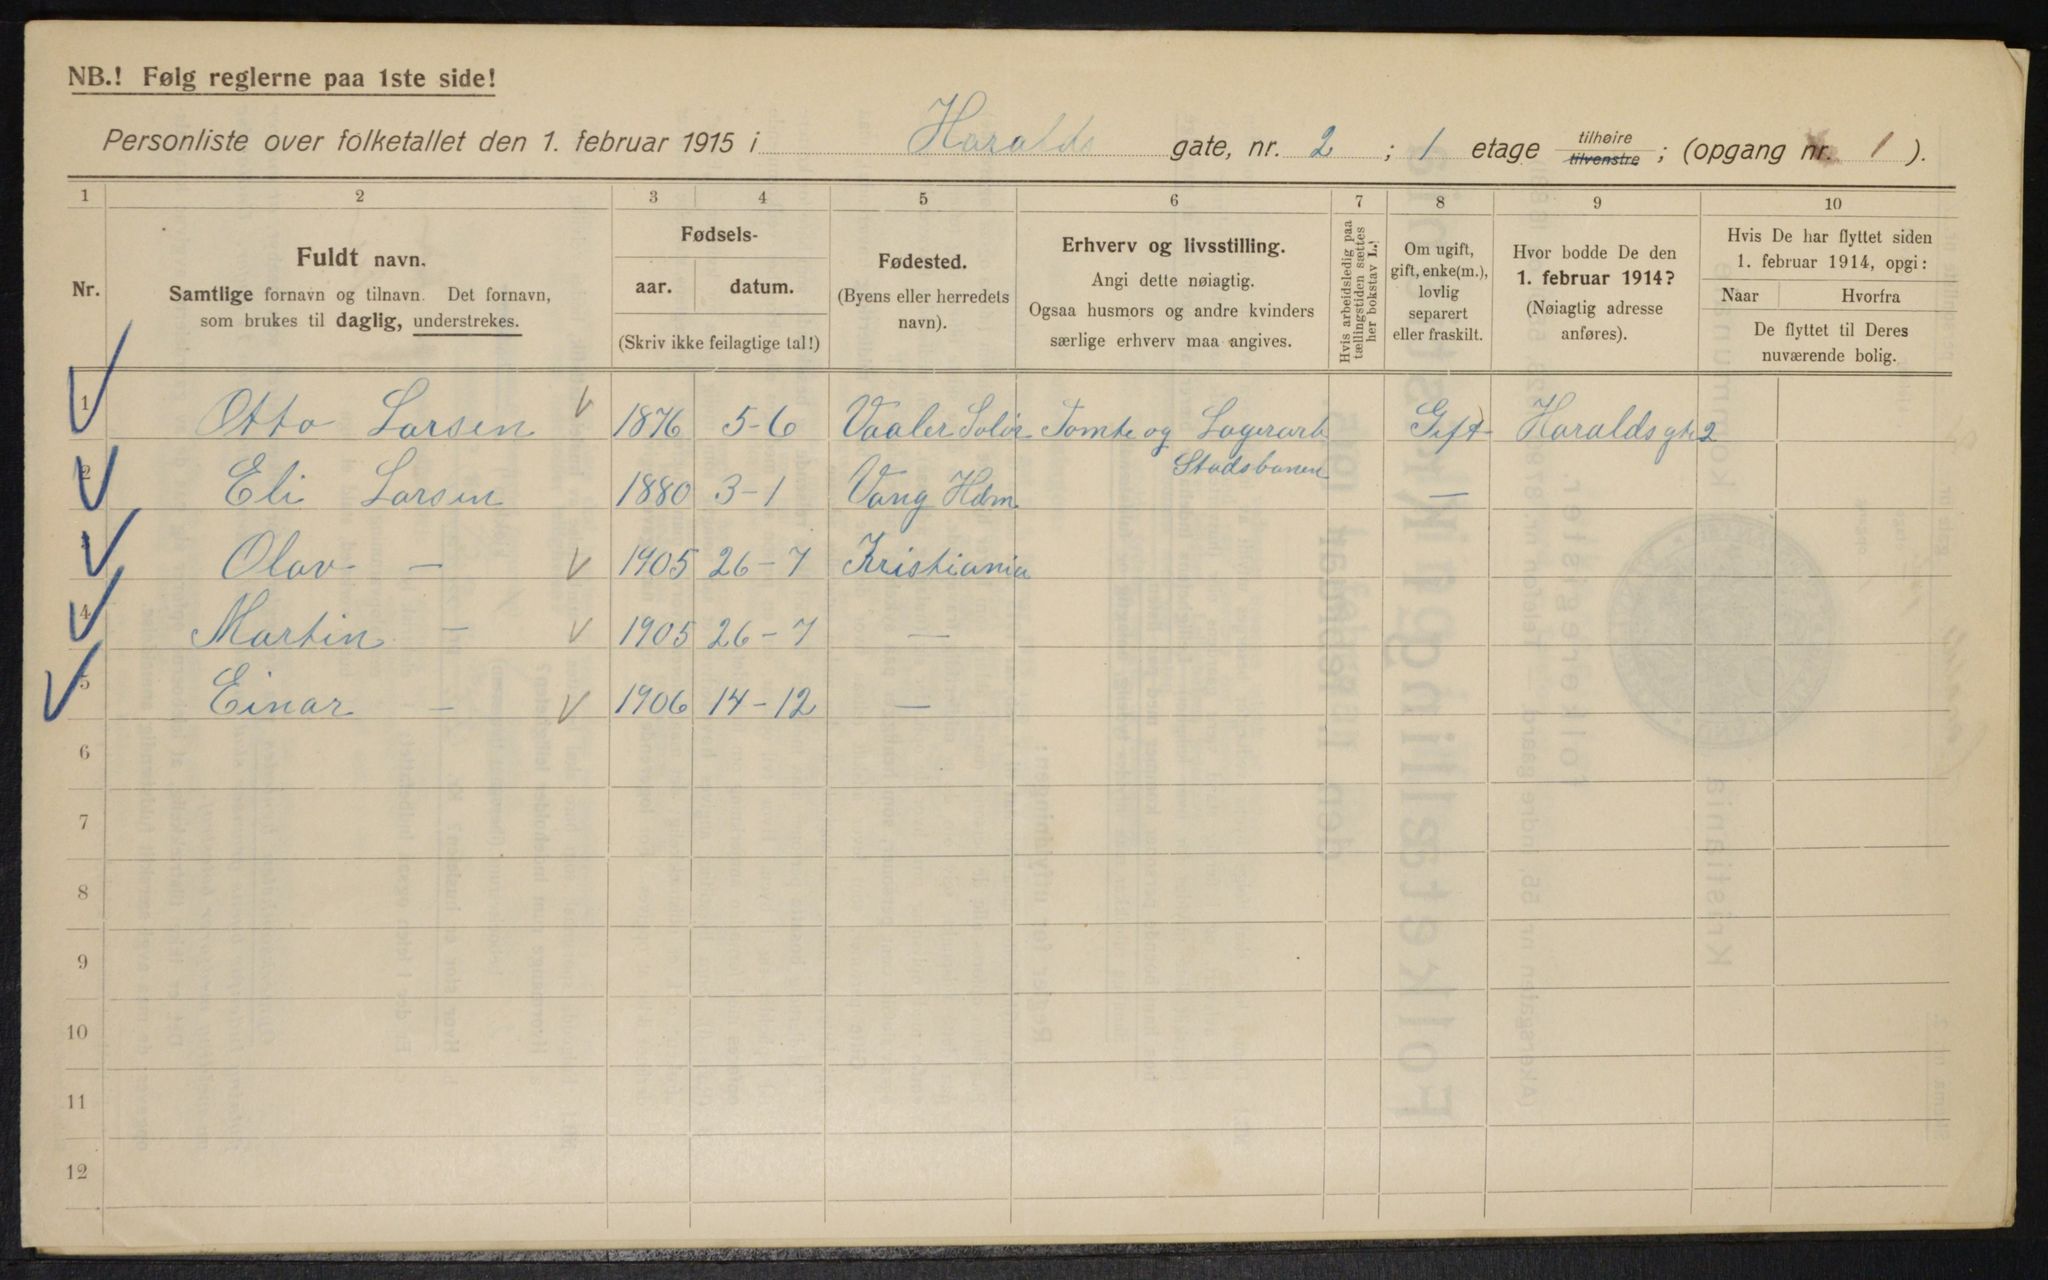 NB.! Følg reglerne paa 1ste side!
Personliste over folketallet den 1. februar 1915 i Haralds gate, nr. 2 ; 1 etage tilhøire tilvenstre ; (opgang nr. 1 ).
1 2 3 4 5 6 7 8 9 10
Nr.
Fuldt navn.
Samtlige fornavn og tilnavn. Det fornavn,
som brukes til daglig, understrekes.
Fødsels-
aar. datum.
(Skriv ikke feilagtige tal!)
Fødested.
(Byens eller herredets
navn).
Erhverv og livsstilling.
Angi dette nøiagtig.
Ogsaa husmors og andre kvinders
særlige erhverv maa angives.
Hvis arbeidsledig paa
tællingstiden sættes
her bokstav L.!
Om ugift,
gift, enke(m.),
lovlig
separert
eller fraskilt.
Hvor bodde De den
1. februar 1914?
(Nøiagtig adresse
anføres).
Hvis De har flyttet siden
1. februar 1914, opgi:
Naar Hvorfra
De flyttet til Deres
nuværende bolig.
1 Otto Larsen 1876 5-6 Vaaler Solør Tomte og Lagerarb Gift Haralds gt 2
Stadsbanen
2 Eli Larsen 1880 3-1 Vang Hdm —
3 Olav — 1905 26-7 Kristiania
4 Martin — 1905 26-7 —
5 Einar — 1906 14-12 —
6
7
8
9
10
11
12